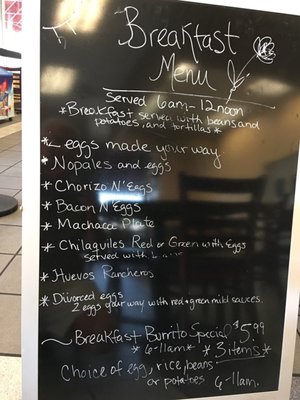 Breakfast
Menu
Served 6am-12noon
*Breakfast served with beans and
potatoes, and tortillas*
* 2 eggs made your way
* Nopales and eggs
* Chorizo N' Eggs
* Bacon N' Eggs
* Machaca Plate
* Chilaquiles Red or Green with Eggs
served with
* Huevos Rancheros
* Divorced eggs
2 eggs your way with red & green mild sauces.
Breakfast Burrito Special $5.99
*6-11am* *3 items*
Choice of egg, rice, beans
or potatoes 6-11am.